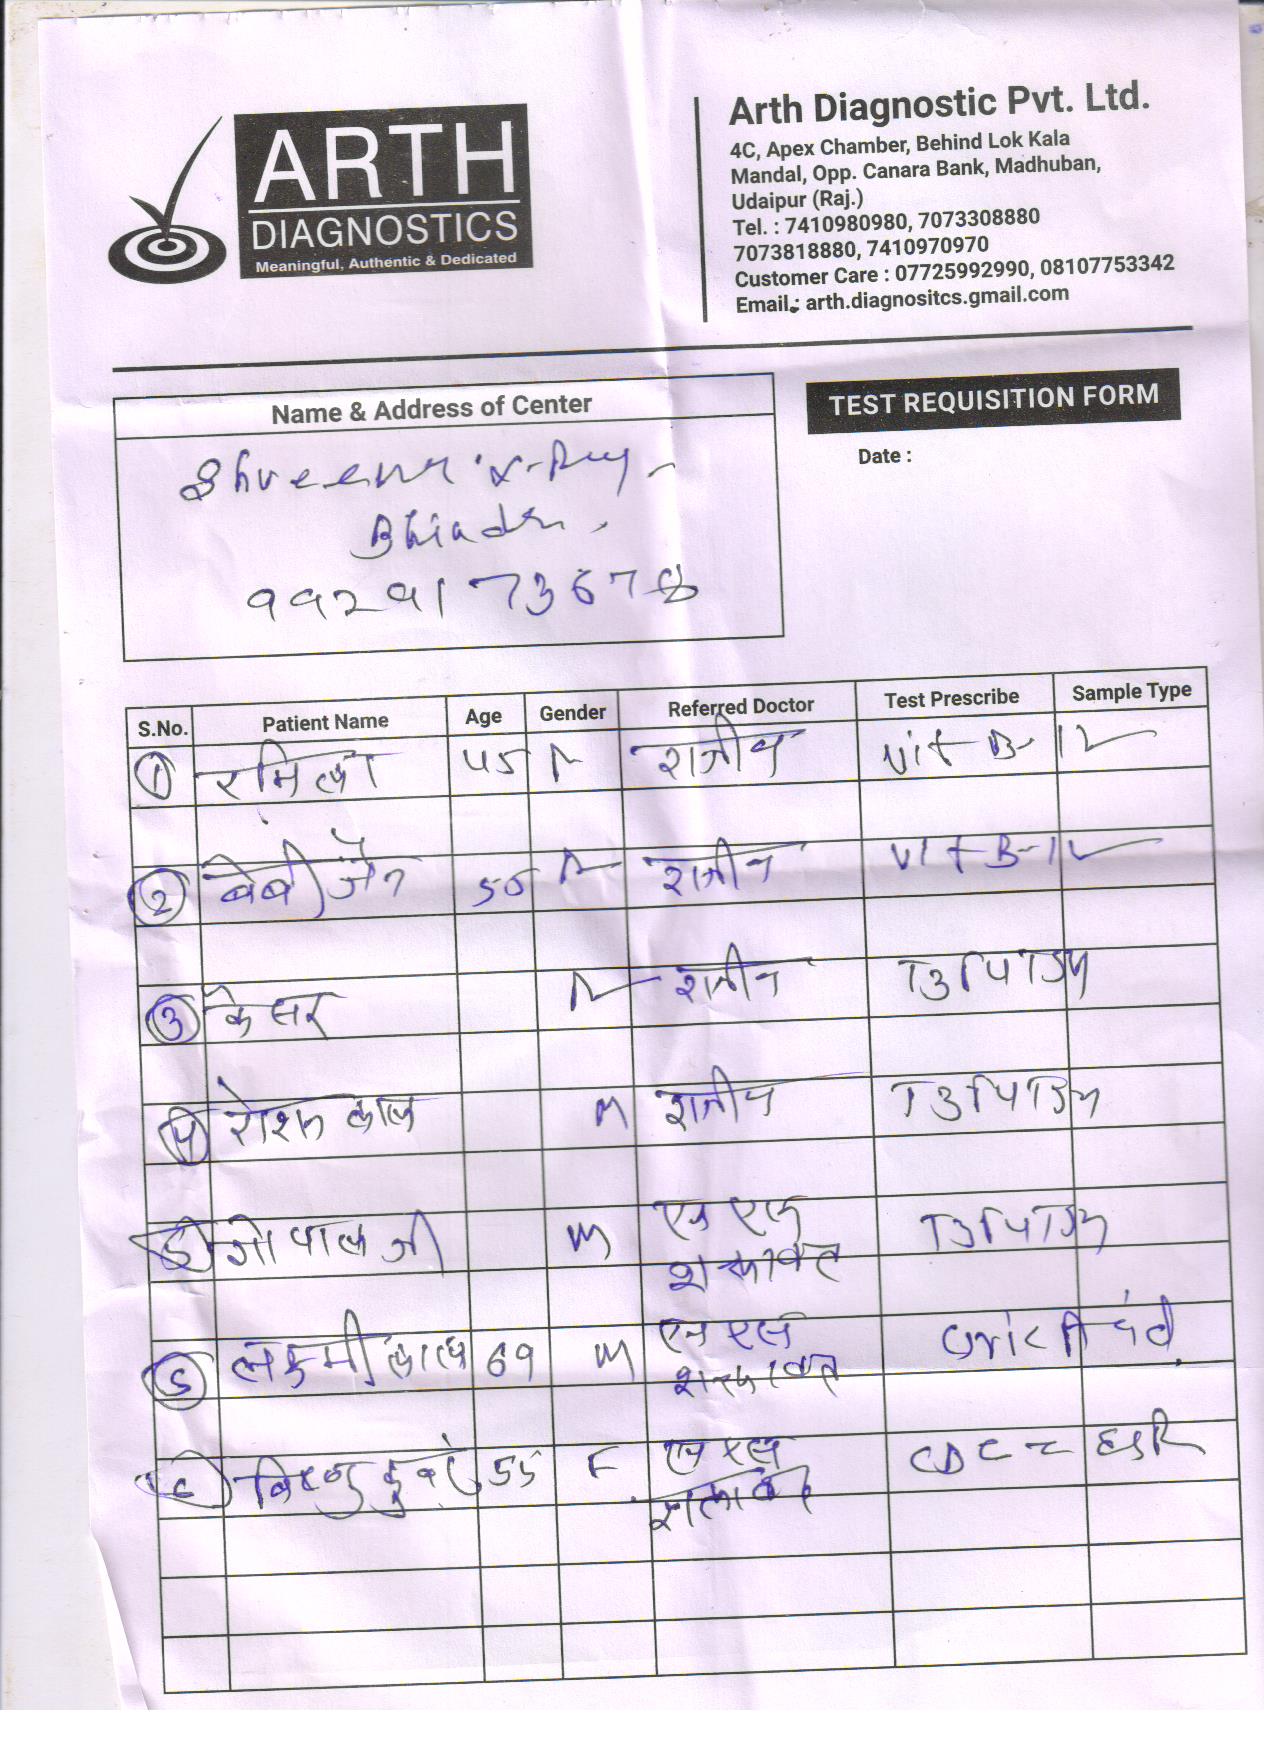 ARTH
DIAGNOSTICS
Meaningful, Authentic & Dedicated
Arth Diagnostic Pvt. Ltd.
4C, Apex Chamber, Behind Lok Kala
Mandal, Opp. Canara Bank, Madhuban,
Udaipur (Raj.)
Tel. : 7410980980, 7073308880
7073818880, 7410970970
Customer Care : 07725992990, 08107753342
Email.: arth.diagnositcs.gmail.com
Name & Address of Center
TEST REQUISITION FORM
Date :
X-Ray
Bhinder
S.No. Patient Name Age Gender Referred Doctor Test Prescribe Sample Type
1 रमिला 45 राजीव Vit B-12
2 बेबी जैन 55 राजीव Vit B-12
3 केसर राजीव
4 रोशन लाल M राजीव
गोपाल जी M एन एल
शक्तावत
5 लक्ष्मी लाल 69 M एन एल Uric
शक्तावत
विष्णु कुंवर 55 F एन एल ESR
शक्तावत